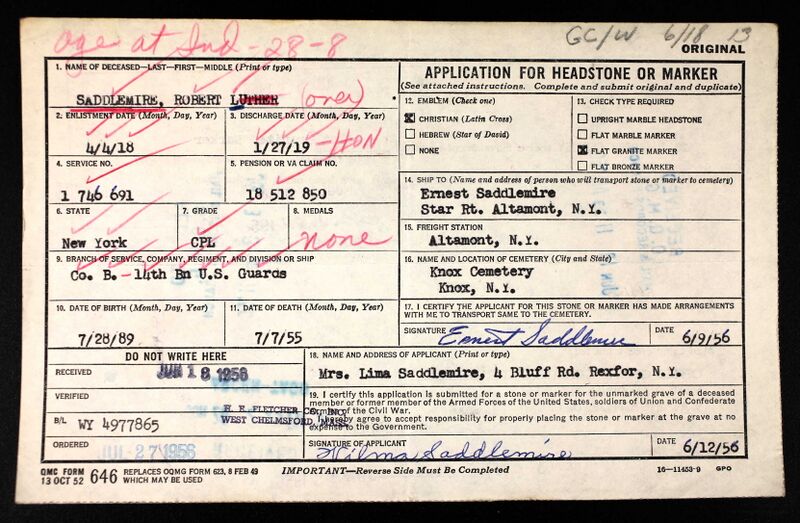 age at Ind - 28-8
GC/W 6/18 13
ORIGINAL
1. NAME OF DECEASED—LAST—FIRST—MIDDLE (Print or type)
SADDLEMIRE, ROBERT LUTHER (over)
2. ENLISTMENT DATE (Month, Day, Year)
4/4/18
3. DISCHARGE DATE (Month, Day, Year)
1/27/19 -HON
4. SERVICE NO.
1 746 691
5. PENSION OR VA CLAIM NO.
18 512 850
6. STATE
New York
7. GRADE
CPL
8. MEDALS
none
9. BRANCH OF SERVICE, COMPANY, REGIMENT, AND DIVISION OR SHIP
Co. B. - 14th Bn U.S. Guards
10. DATE OF BIRTH (Month, Day, Year)
7/28/89
11. DATE OF DEATH (Month, Day, Year)
7/7/55
DO NOT WRITE HERE
RECEIVED
JUN 18 1956
VERIFIED
B/L WY 4977865
H. E. FLETCHER CO., INC.
WEST CHELMSFORD, MASS.
ORDERED
JUL 27 1956
APPLICATION FOR HEADSTONE OR MARKER
(See attached instructions. Complete and submit original and duplicate)
12. EMBLEM (Check one)
X CHRISTIAN (Latin Cross)
HEBREW (Star of David)
NONE
13. CHECK TYPE REQUIRED
UPRIGHT MARBLE HEADSTONE
FLAT MARBLE MARKER
X FLAT GRANITE MARKER
FLAT BRONZE MARKER
14. SHIP TO (Name and address of person who will transport stone or marker to cemetery)
Ernest Saddlemire
Star Rt. Altamont, N.Y.
15. FREIGHT STATION
Altamont, N.Y.
16. NAME AND LOCATION OF CEMETERY (City and State)
Knox Cemetery
Knox, N.Y.
17. I CERTIFY THE APPLICANT FOR THIS STONE OR MARKER HAS MADE ARRANGEMENTS
WITH ME TO TRANSPORT SAME TO THE CEMETERY.
SIGNATURE Ernest Saddlemire DATE 6/9/56
18. NAME AND ADDRESS OF APPLICANT (Print or type)
Mrs. Lima Saddlemire, 4 Bluff Rd. Rexfor, N.Y.
19. I certify this application is submitted for a stone or marker for the unmarked grave of a deceased
member or former member of the Armed Forces of the United States, soldiers of Union and Confederate
Armies of the Civil War.
I hereby agree to accept responsibility for properly placing the stone or marker at the grave at no
expense to the Government.
SIGNATURE OF APPLICANT
Wilma Saddlemire
DATE 6/12/56
QMC FORM
13 OCT 52 646 REPLACES OQMG FORM 623, 8 FEB 49
WHICH MAY BE USED
IMPORTANT—Reverse Side Must Be Completed
16—11453-9 GPO